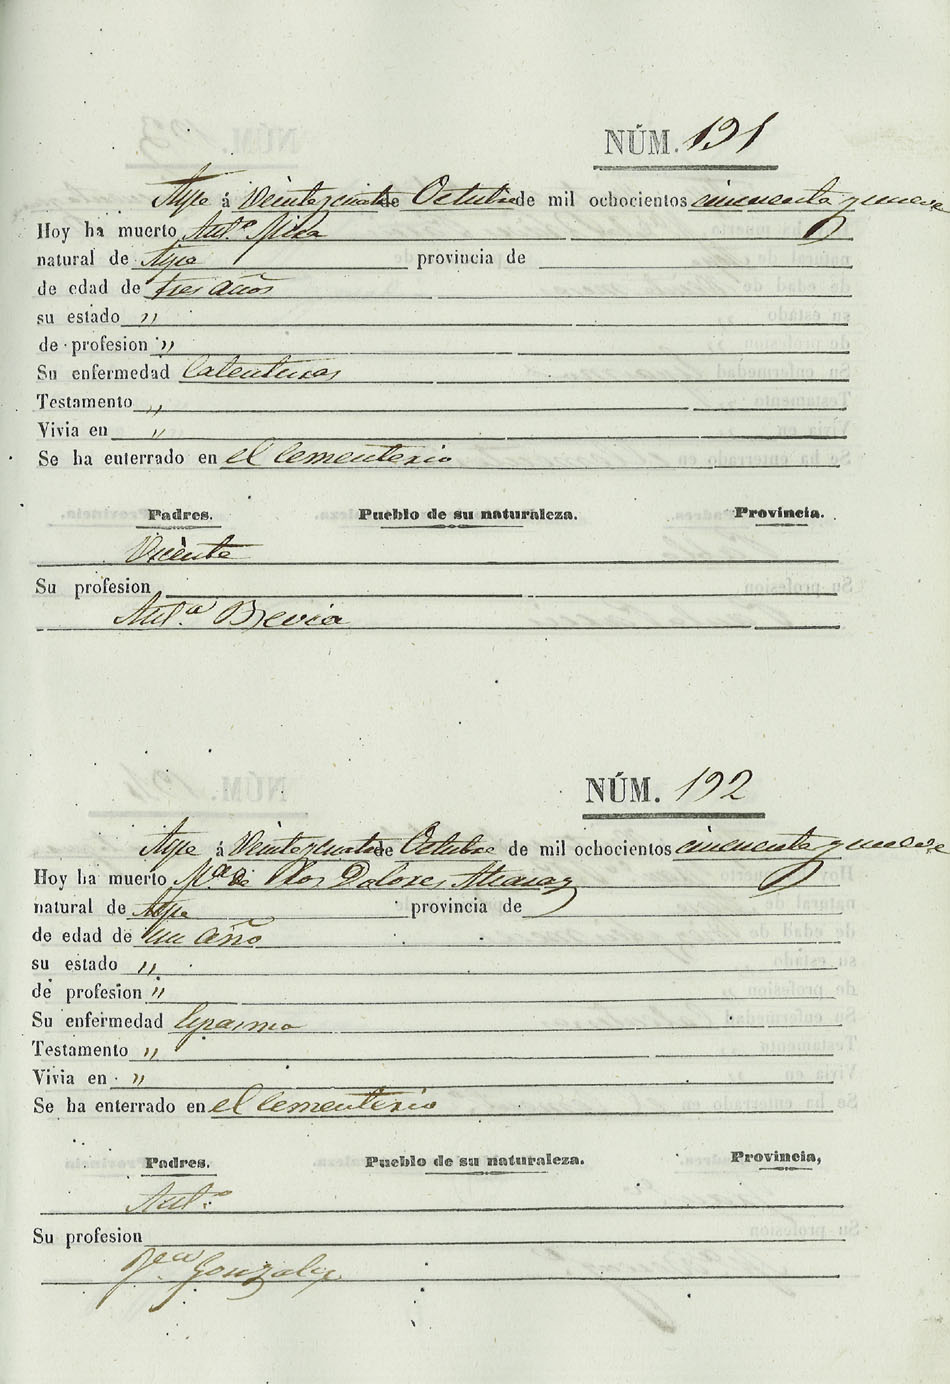 NÚM. 191
Aspe á Veintecuatro de Octubre de mil ochocientos cincuenta y nueve
Hoy ha muerto Ant.º Mira
natural de Aspe provincia de
de edad de tres años
su estado "
de profesion "
Su enfermedad Calenturas
Testamento "
Vivia en "
Se ha enterrado en el Cementerio
Padres. Pueblo de su naturaleza. Provincia.
Vicente
Su profesion
Ant.ª Brevia
NÚM. 192
Aspe á Veintecuatro de Octubre de mil ochocientos cincuenta y nueve
Hoy ha muerto M.ª de Los Dolores
natural de Aspe provincia de
de edad de un año
su estado "
de profesion "
Su enfermedad Espasmo
Testamento "
Vivia en "
Se ha enterrado en el Cementerio
Padres. Pueblo de su naturaleza. Provincia,
Ant.º
Su profesion
Gonzalez